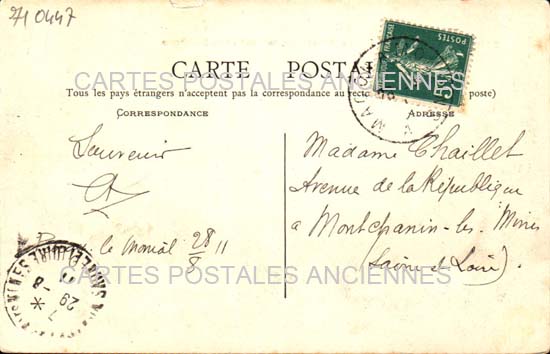 71 0447
POSTES
5
CARTE POSTALE
CARTES POSTALES ANCIENNES
Tous les pays étrangers n'acceptent pas la correspondance au recto poste)
CORRESPONDANCE
ADRESSE
Souvenir
le Monial 28 11
Madame Chaillet
Avenue de la République
a Montchanin-les-Mines
(Saône-et-Loire).
MACON
CARTES POSTALES ANCIENNES
SAONE-ET-LOIRE
7
29
8